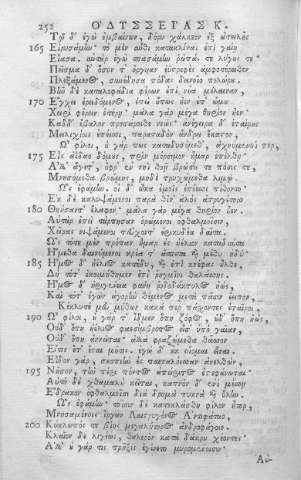 252 ΟΔΥΣΣΕΙΑΣ Κ.
Τῷ δ' ἐγὼ ἐμβαίνων, δόρυ χάλκεον ἐξ ὠτειλῆς
165 Εἰρυσάμην· τὸ μὲν αὖθι κατακλίνας ἐπὶ γαίῃ
Εἴασα. αὐτὰρ ἐγὼ σπασάμην ῥῶπάς τε λύγους τε·
Πεῖσμα δ' ὅσον τ' ὄργυιαν ἐϋστρεφὲς ἀμφοτέρωθεν
Πλεξάμενος, συνέδησα πόδας δεινοῖο πελώρου.
Βῆν δὲ καταλοφάδια φέρων ἐπὶ νῆα μέλαιναν,
170 Ἔγχει ἐρειδόμενος, ἐπεὶ οὔπως ἦεν ἐπ' ὤμου
Χειρὶ φέρειν ἑτέρῃ· μάλα γὰρ μέγα θηρίον ἦεν.
Κὰδδ' ἔβαλον προπάροιθε νεὸς· ἀνέγειρα δ' ἑταίρους
Μειλιχίοις ἐπέεσσι, παρασταδὸν ἄνδρα ἕκαστον.
Ὦ φίλοι, οὐ γάρ πως καταδυσόμεθ', ἀχνύμενοί περ,
175 Εἰς ἀΐδαο δόμους, πρὶν μόρσιμον ἦμαρ ἐπέλθῃ·
Ἀλλ' ἄγετ', ὄφρ' ἐν νηῒ θοῇ βρῶσίς τε πόσις τε,
Μνησόμεθα βρώμης, μηδὲ τρυχώμεθα λιμῷ.
Ὣς ἐφάμην. οἱ δ' ὦκα ἐμοῖς ἐπέεσσι πίθοντο·
Ἐκ δὲ καλυψάμενοι παρὰ θῖν' ἁλὸς ἀτρυγέτοιο
180 Θηήσαντ' ἔλαφον· μάλα γὰρ μέγα θηρίον ἦεν.
Αὐτὰρ ἐπεὶ τάρπησαν ὁρώμενοι ὀφθαλμοῖσιν,
Χεῖρας νιψάμενοι τεύχοντ' ἐρικυδέα δαῖτα.
Ὣς τότε μὲν πρόπαν ἦμαρ ἐς ἠέλιον καταδύντα
Ἥμεθα δαινύμενοι κρέα τ' ἄσπετα καὶ μέθυ ἡδύ·
185 Ἦμος δ' ἠέλιος κατέδυ, καὶ ἐπὶ κνέφας ἦλθε,
Δὴ τότ' ἐκοιμήθημεν ἐπὶ ῥηγμῖνι θαλάσσης.
Ἦμος δ' ἠριγένεια φάνη ῥοδοδάκτυλος ἠὼς,
Καὶ τότ' ἐγὼν ἀγορὴν θέμενος μετὰ πᾶσιν ἔειπον,
Κέκλυτέ μευ μύθων κακά περ πάσχοντες ἑταῖροι,
190 Ὦ φίλοι, οὐ γάρ τ' ἴδμεν ὅπῃ ζόφος, οὐδ' ὅπῃ ἠὼς,
Οὐδ' ὅπῃ ἠέλιος φαεσίμβροτος εἶσ' ὑπὸ γαῖαν,
Οὐδ' ὅπῃ ἀννεῖται· ἀλλὰ φραζώμεθα θᾶσσον
Εἴ τις ἔτ' ἔσται μῆτις. ἐγὼ δ' οὐκ οἴομαι εἶναι.
Εἶδον γὰρ, σκοπιὴν ἐς παιπαλόεσσαν ἀνελθὼν,
195 Νῆσον, τὴν πέρι πόντος ἀπείριτος ἐστεφάνωται·
Αὐτὴ δὲ χθαμαλὴ κεῖται, καπνὸν δ' ἐνὶ μέσσῃ
Ἔδρακον ὀφθαλμοῖσι διὰ δρυμὰ πυκνὰ καὶ ὕλην.
Ὣς ἐφάμην· τοῖσιν δὲ κατεκλάσθη φίλον ἦτορ,
Μνησαμένοις ἔργων Λαιστρυγόνος Ἀντιφάταο,
200 Κύκλωπός τε βίης μεγαλήτορος ἀνδροφάγοιο.
Κλαῖον δὲ λιγέως, θαλερὸν κατὰ δάκρυ χέοντες·
Ἀλλ' οὐ γάρ τις πρῆξις ἐγίνετο μυρομένοισιν.
Αὐ-